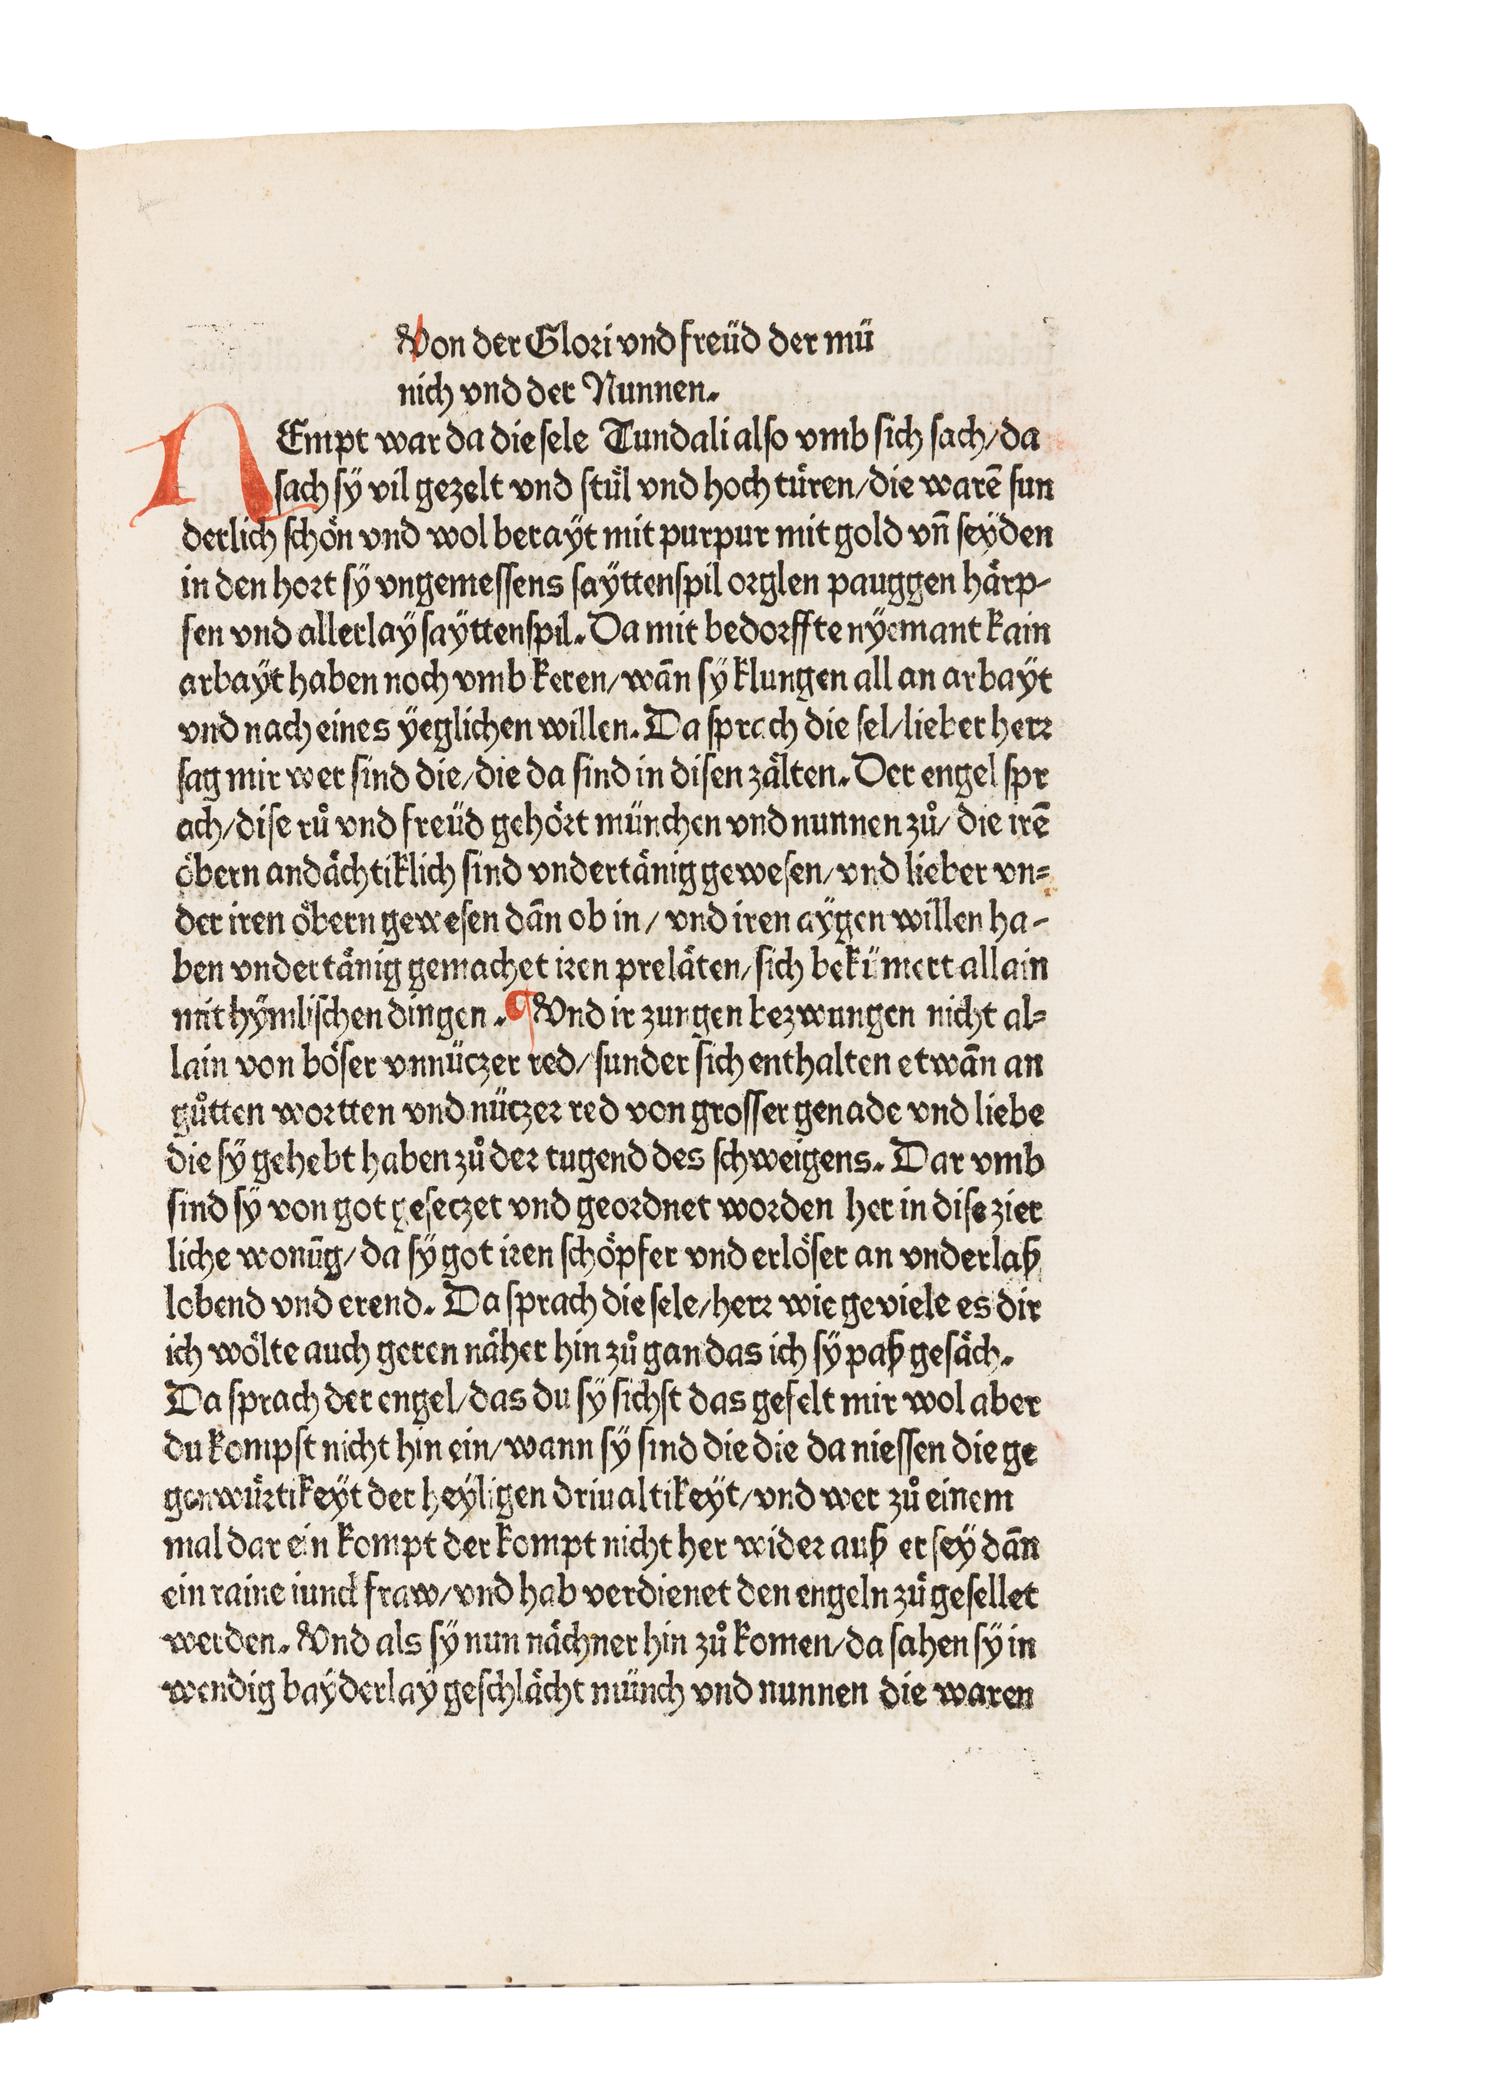 Von der Glori vnd freüd der mü
nich vnd der Nunnen.
NEmpt war da die sele Tundali also vmb sich sach/da
sach sÿ vil gezelt vnd stuͤl vnd hoch tuͤren/die warē sun
derlich schoͤn vnd wol berayt mit purpur mit gold vn̄ seÿden
in den hort sÿ vngemessens saÿttenspil orglen pauggen haͤrp-
fen vnd allerlaÿ saÿttenspil. Da mit bedorffte nÿemant kain
arbaÿt haben noch vmb keren/wān sÿ klungen all an arbaÿt
vnd nach eines ÿeglichen willen. Da sprach die sel/lieber herr
sag mir wer sind die/die da sind in disen zaͤlten. Der engel spr
ach/dise ruͦ vnd freüd gehoͤrt münchen vnd nunnen zuͦ/ die irē
oͤbern andaͤchtiklich sind vndertaͤnig gewesen/vnd lieber vn=
der iren oͤbern gewesen dān ob in/ vnd iren aÿgen willen ha-
ben vndertaͤnig gemachet iren prelaͤten/sich bekümert allain
mit hÿmlischen dingen. ¶ Vnd ir zungen bezwungen nicht al=
lain von boͤser vnnüczer red/sunder sich enthalten etwān an
guͦtten wortten vnd nüczer red von grosser genade vnd liebe
die sÿ gehebt haben zuͦ der tugend des schweigens. Dar vmb
sind sÿ von got geseczet vnd geordnet worden her in dise zier
liche wonūg/da sÿ got iren schoͤpfer vnd erloͤser an vnderlaß
lobend vnd erend. Da sprach die sele/herr wie geviele es dir
ich woͤlte auch geren naͤher hin zuͦ gan das ich sÿ paß gesaͤch.
Da sprach der engel/das du sÿ sichst das gefelt mir wol aber
du kompst nicht hin ein/wann sÿ sind die die da niessen die ge
genwürtikeÿt der heÿligen driualtikeÿt/vnd wer zuͦ einem
mal dar ein kompt der kompt nicht her wider auß er seÿ dān
ein raine iunckfraw/vnd hab verdienet den engeln zuͦ gesellet
werden. Vnd als sÿ nun naͤchner hin zuͦ komen/da sahen sÿ in
wendig baÿderlaÿ geschlaͤcht münch vnd nunnen die waren